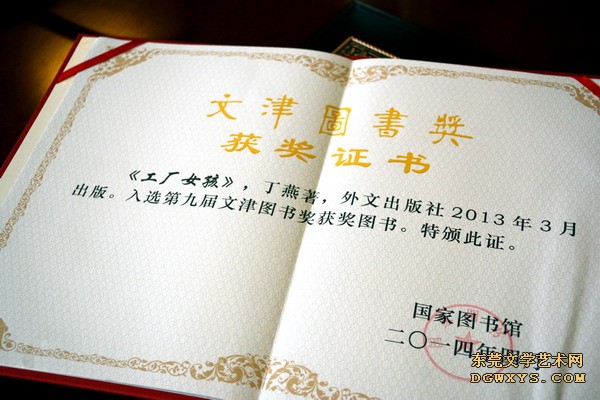 文津圖書獎
获奖证书
《工厂女孩》，丁燕著，外文出版社2013年3月
出版。入选第九届文津图书奖获奖图书。特颁此证。
国家图书馆
二〇一四年
东莞文学艺术网
DGWXYS.COM